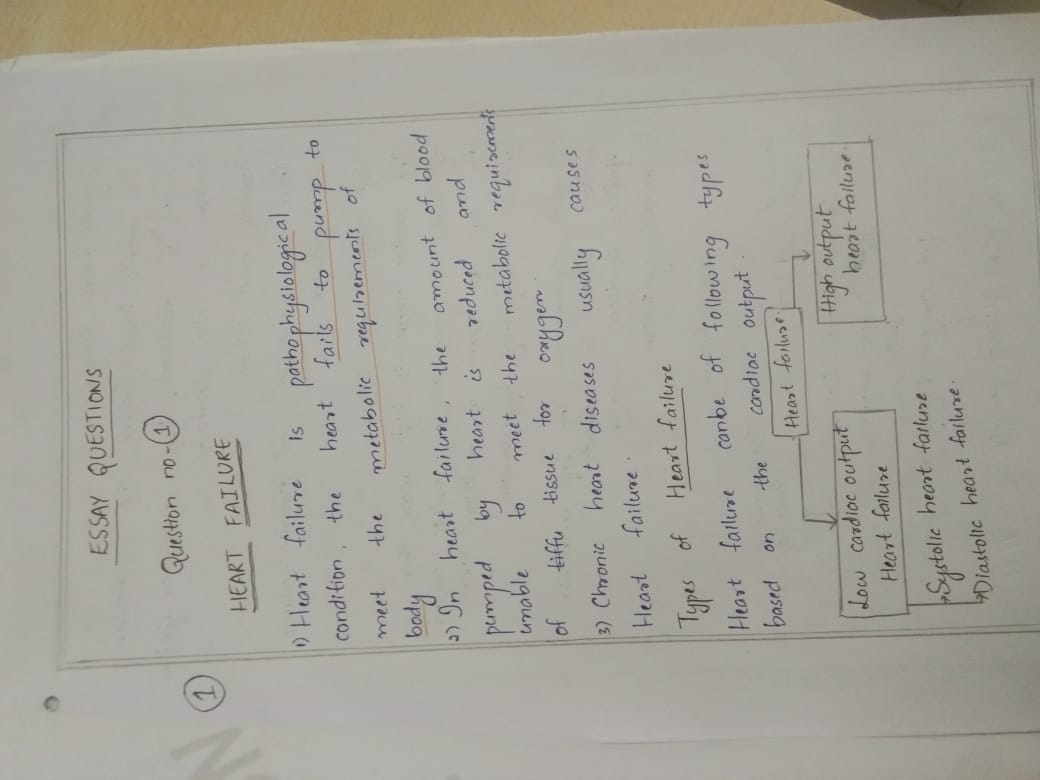 ESSAY QUESTIONS
1
Question no-1
HEART FAILURE
1) Heart failure is pathophysiological
condition, the heart fails to pump to
meet the metabolic requirements of
body
2) In heart failure, the amount of blood
pumped by heart is reduced and
unable to meet the metabolic requirements
of tiffu tissue for oxygen
3) Chronic heart diseases usually causes
Heart failure.
Types of Heart failure
Heart failure canbe of following types
based on the cardiac output.
Heart failure.
Low cardiac output
Heart failure
High output
heart failure.
→Systolic heart failure
→Diastolic heart failure.